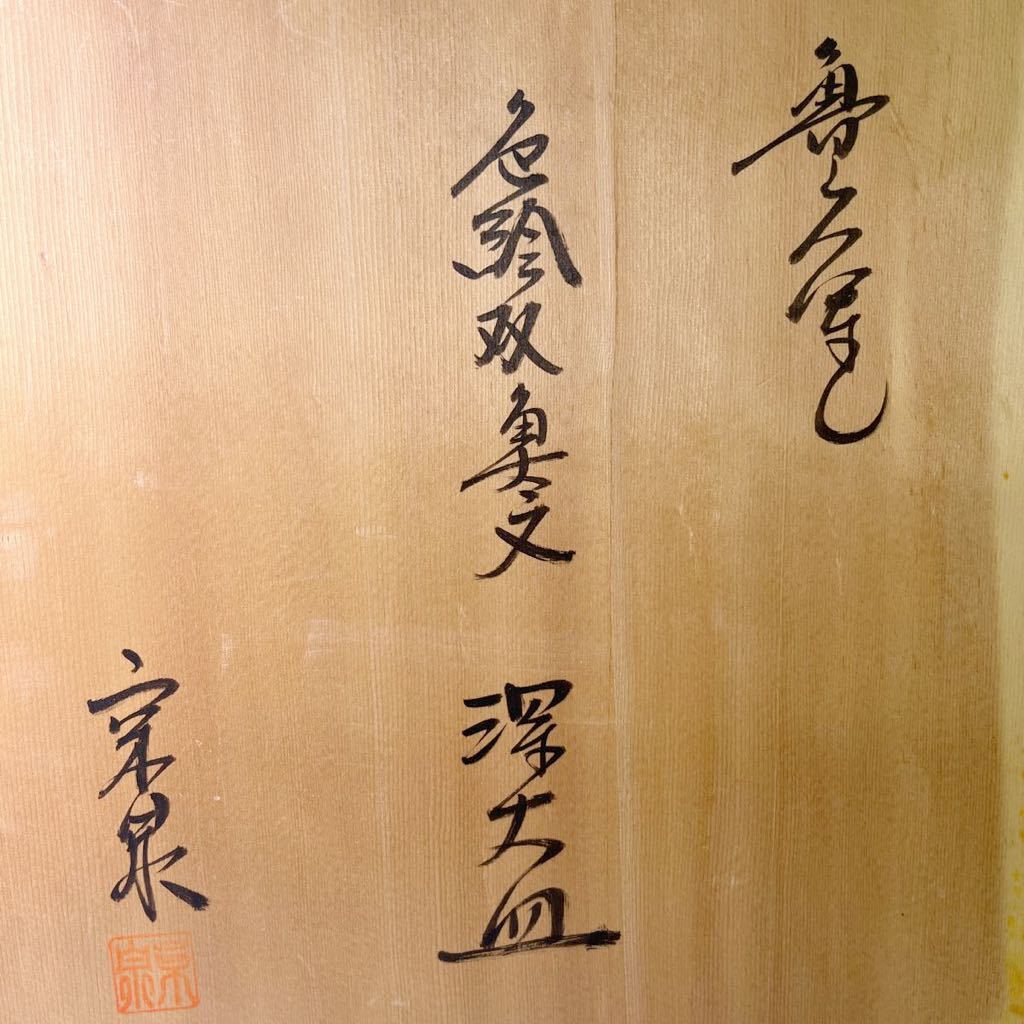 魯山人写し
色絵双魚文 深大皿
宗泉
宗泉